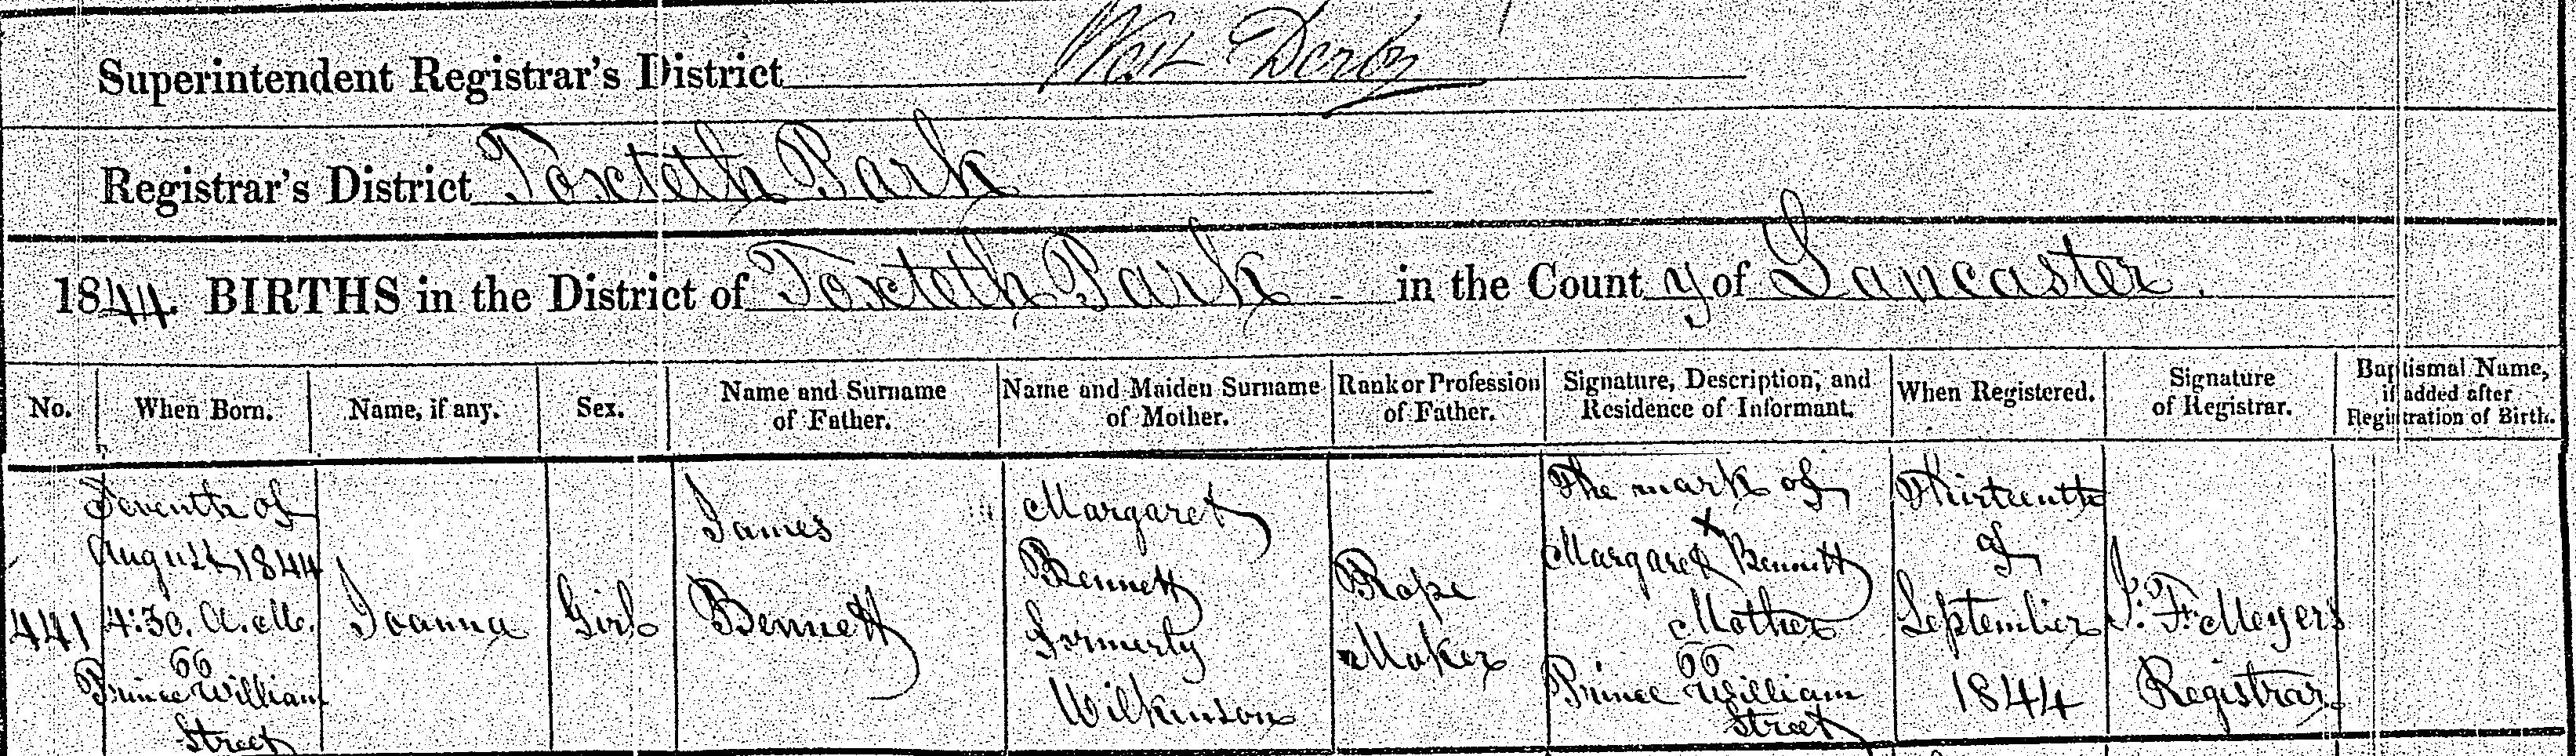 Superintendent Registrar's District West Derby
Registrar's District Toxteth Park
1844. BIRTHS in the District of Toxteth Park - in the County of Lancaster.
No.
When Born.
Name, if any.
Sex.
Name and Surname
of Father.
Name and Maiden Surname
of Mother.
Rank or Profession
of Father.
Signature, Description, and
Residence of Informant.
When Registered.
Signature
of Registrar.
Baptismal Name,
if added after
Registration of Birth.
441
Seventh of
August 1844
4:30. A.M.
66
Prince William
Street
Joanna
Girl
James
Bennett
Margaret
Bennett
formerly
Wilkinson
Rope
Maker
The mark of
X
Margaret Bennett
Mother
66
Prince William
Street
Thirteenth
of
September
1844
J. F. Meyers
Registrar.